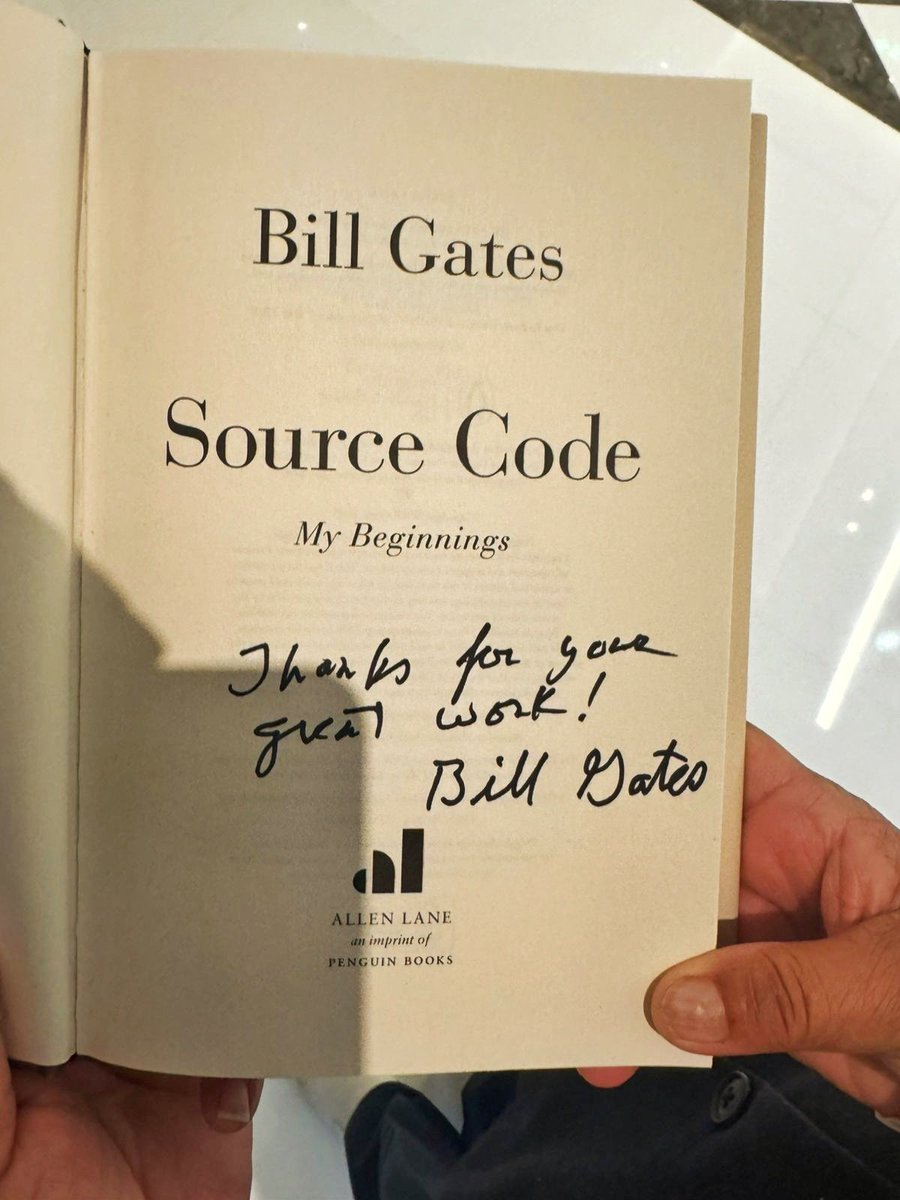 Bill Gates
Source Code
My Beginnings
Thanks for your
great work!
Bill Gates
al
ALLEN LANE
an imprint of
PENGUIN BOOKS